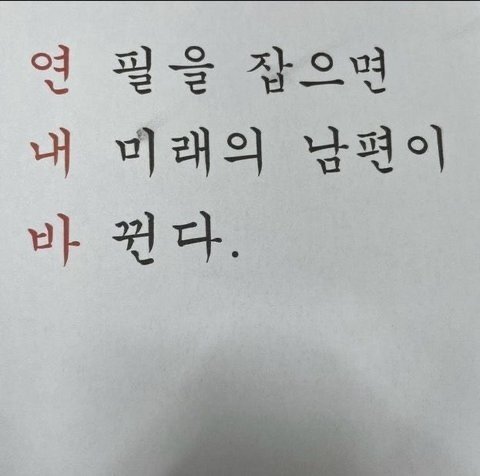 연필을 잡으면
내 미래의 남편이
바뀐다.